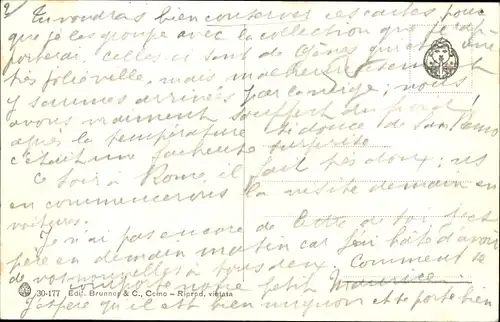 2/
Tu voudras bien conserver ces cartes pour
que je les groupe avec la collection que je rap-
porterai, celles ci sont de Gênes qui est une
très jolie ville, mais malheureusement
y sommes arrivés par la neige; nous
avons vraiment souffert du froid!
après la température si douce de San Remo
c'était une fâcheuse surprise
Ce soir à Rome, il fait très doux; us
en commencerons la visite demain en
voitures.
Je n'ai pas encore de lettre de toi j'es
père en demain matin car j'ai hâte d'avoir
de vos nouvelles à tous deux. Comment se
comporte notre petit Maurice
J'espère qu'il est bien mignon et se porte bien
30-177 Edit. Brunner & C., Como – Riprod. vietata